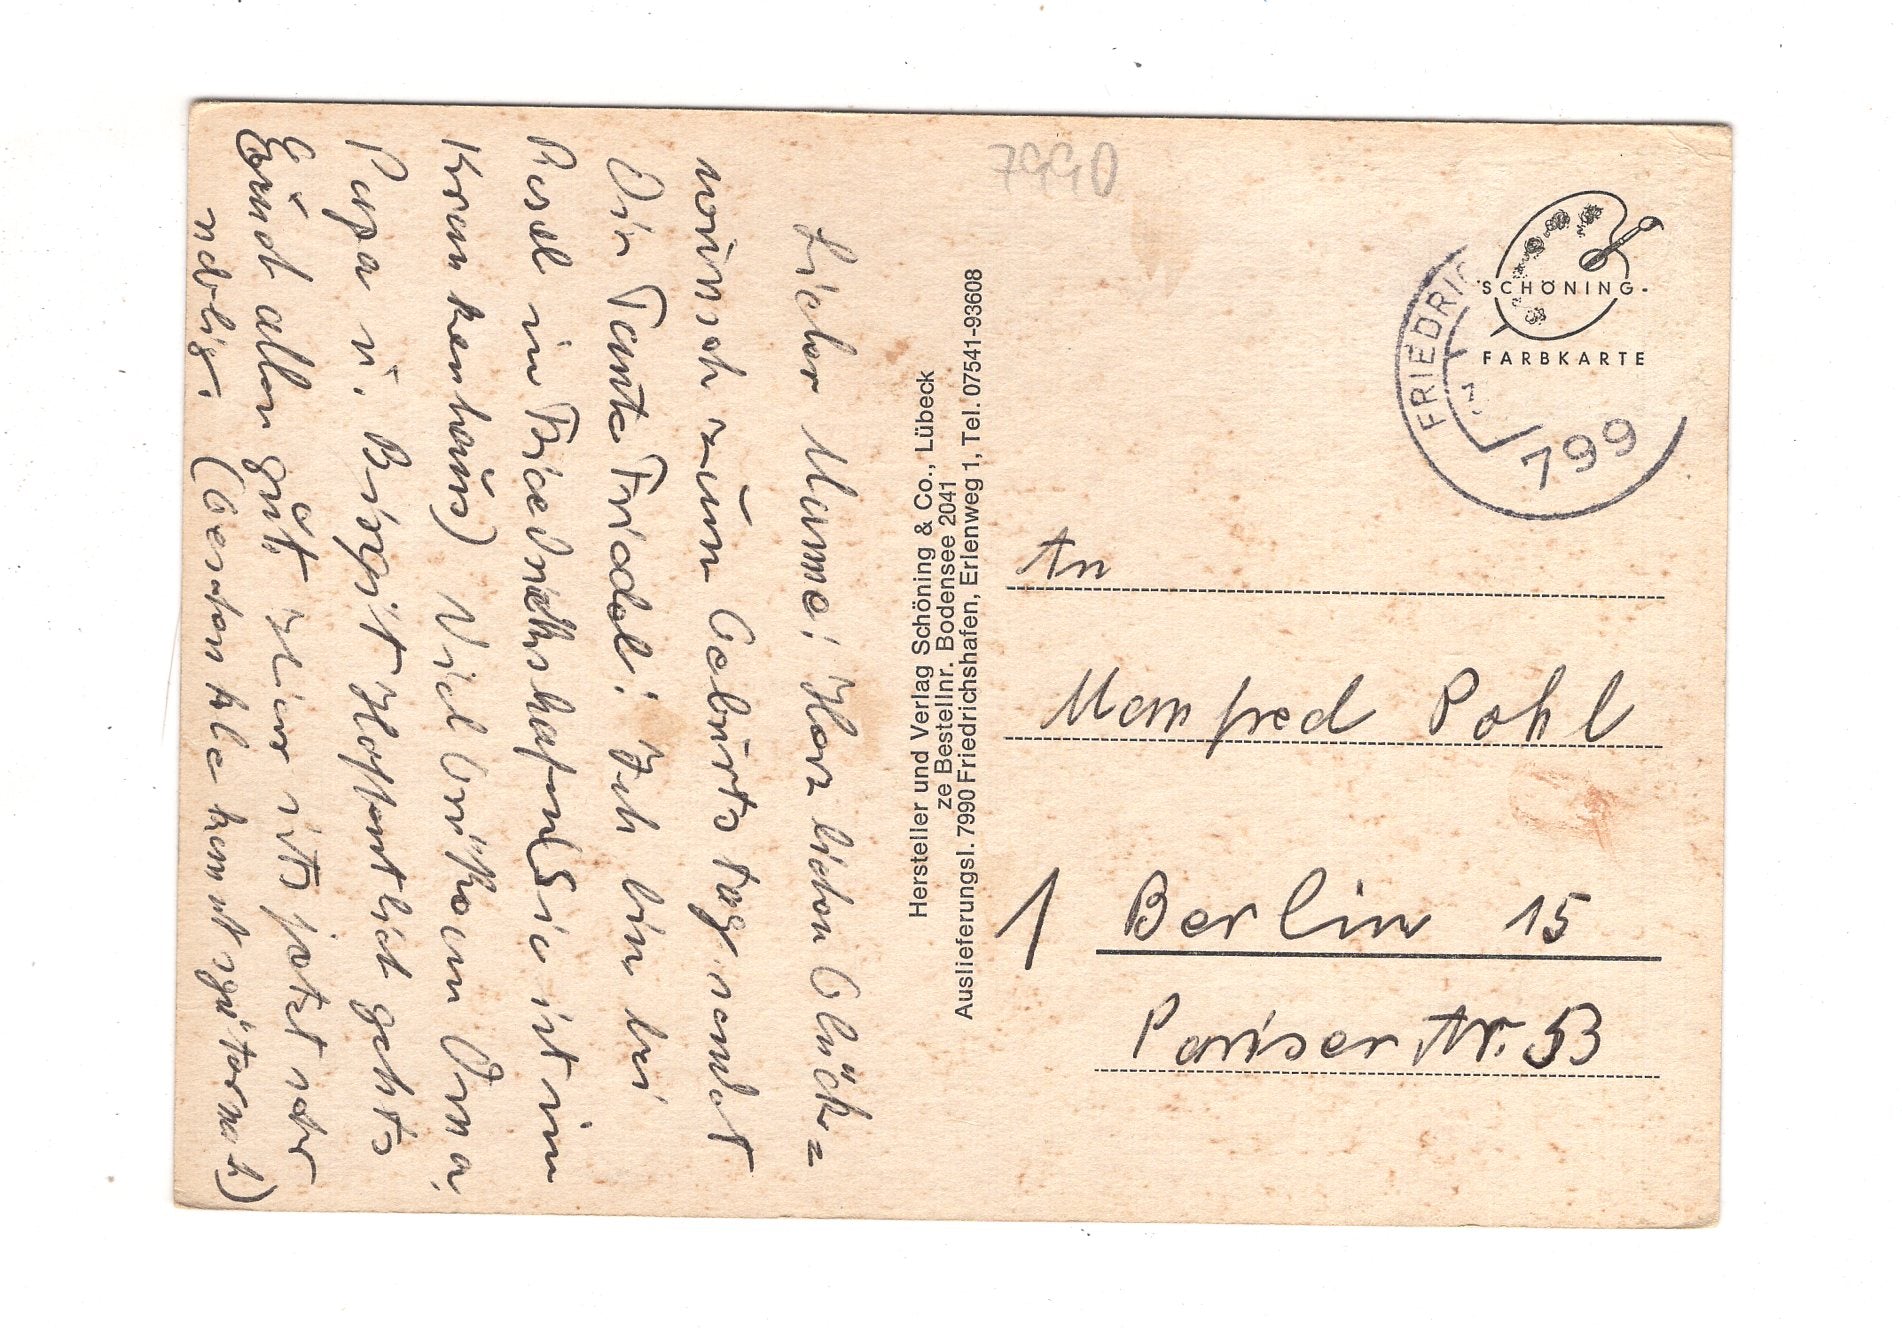 Lieber Manne! Herzlichen Glück=
wünsch züm Gebürtstag sendet
Dir Tante Friedel! Ich bin bei
Rosel in Friedrichshafen (Sie ist im
Krankenhaüs) Viel Grüße an Oma,
Papa ü. Birgit Hoffentlich gehts
Eüch allen güt. Hier ists jetzt sehr
neblig. (Gestern Abend
7990
Hersteller und Verlag Schöning & Co., Lübeck
ze Bestellnr. Bodensee 2041
Auslieferungsl. 7990 Friedrichshafen, Erlenweg 1, Tel. 07541-93608
SCHÖNING-
FARBKARTE
FRIEDRIC
799
An
Manfred Pohl
1 Berlin 15
Pariser Str. 53